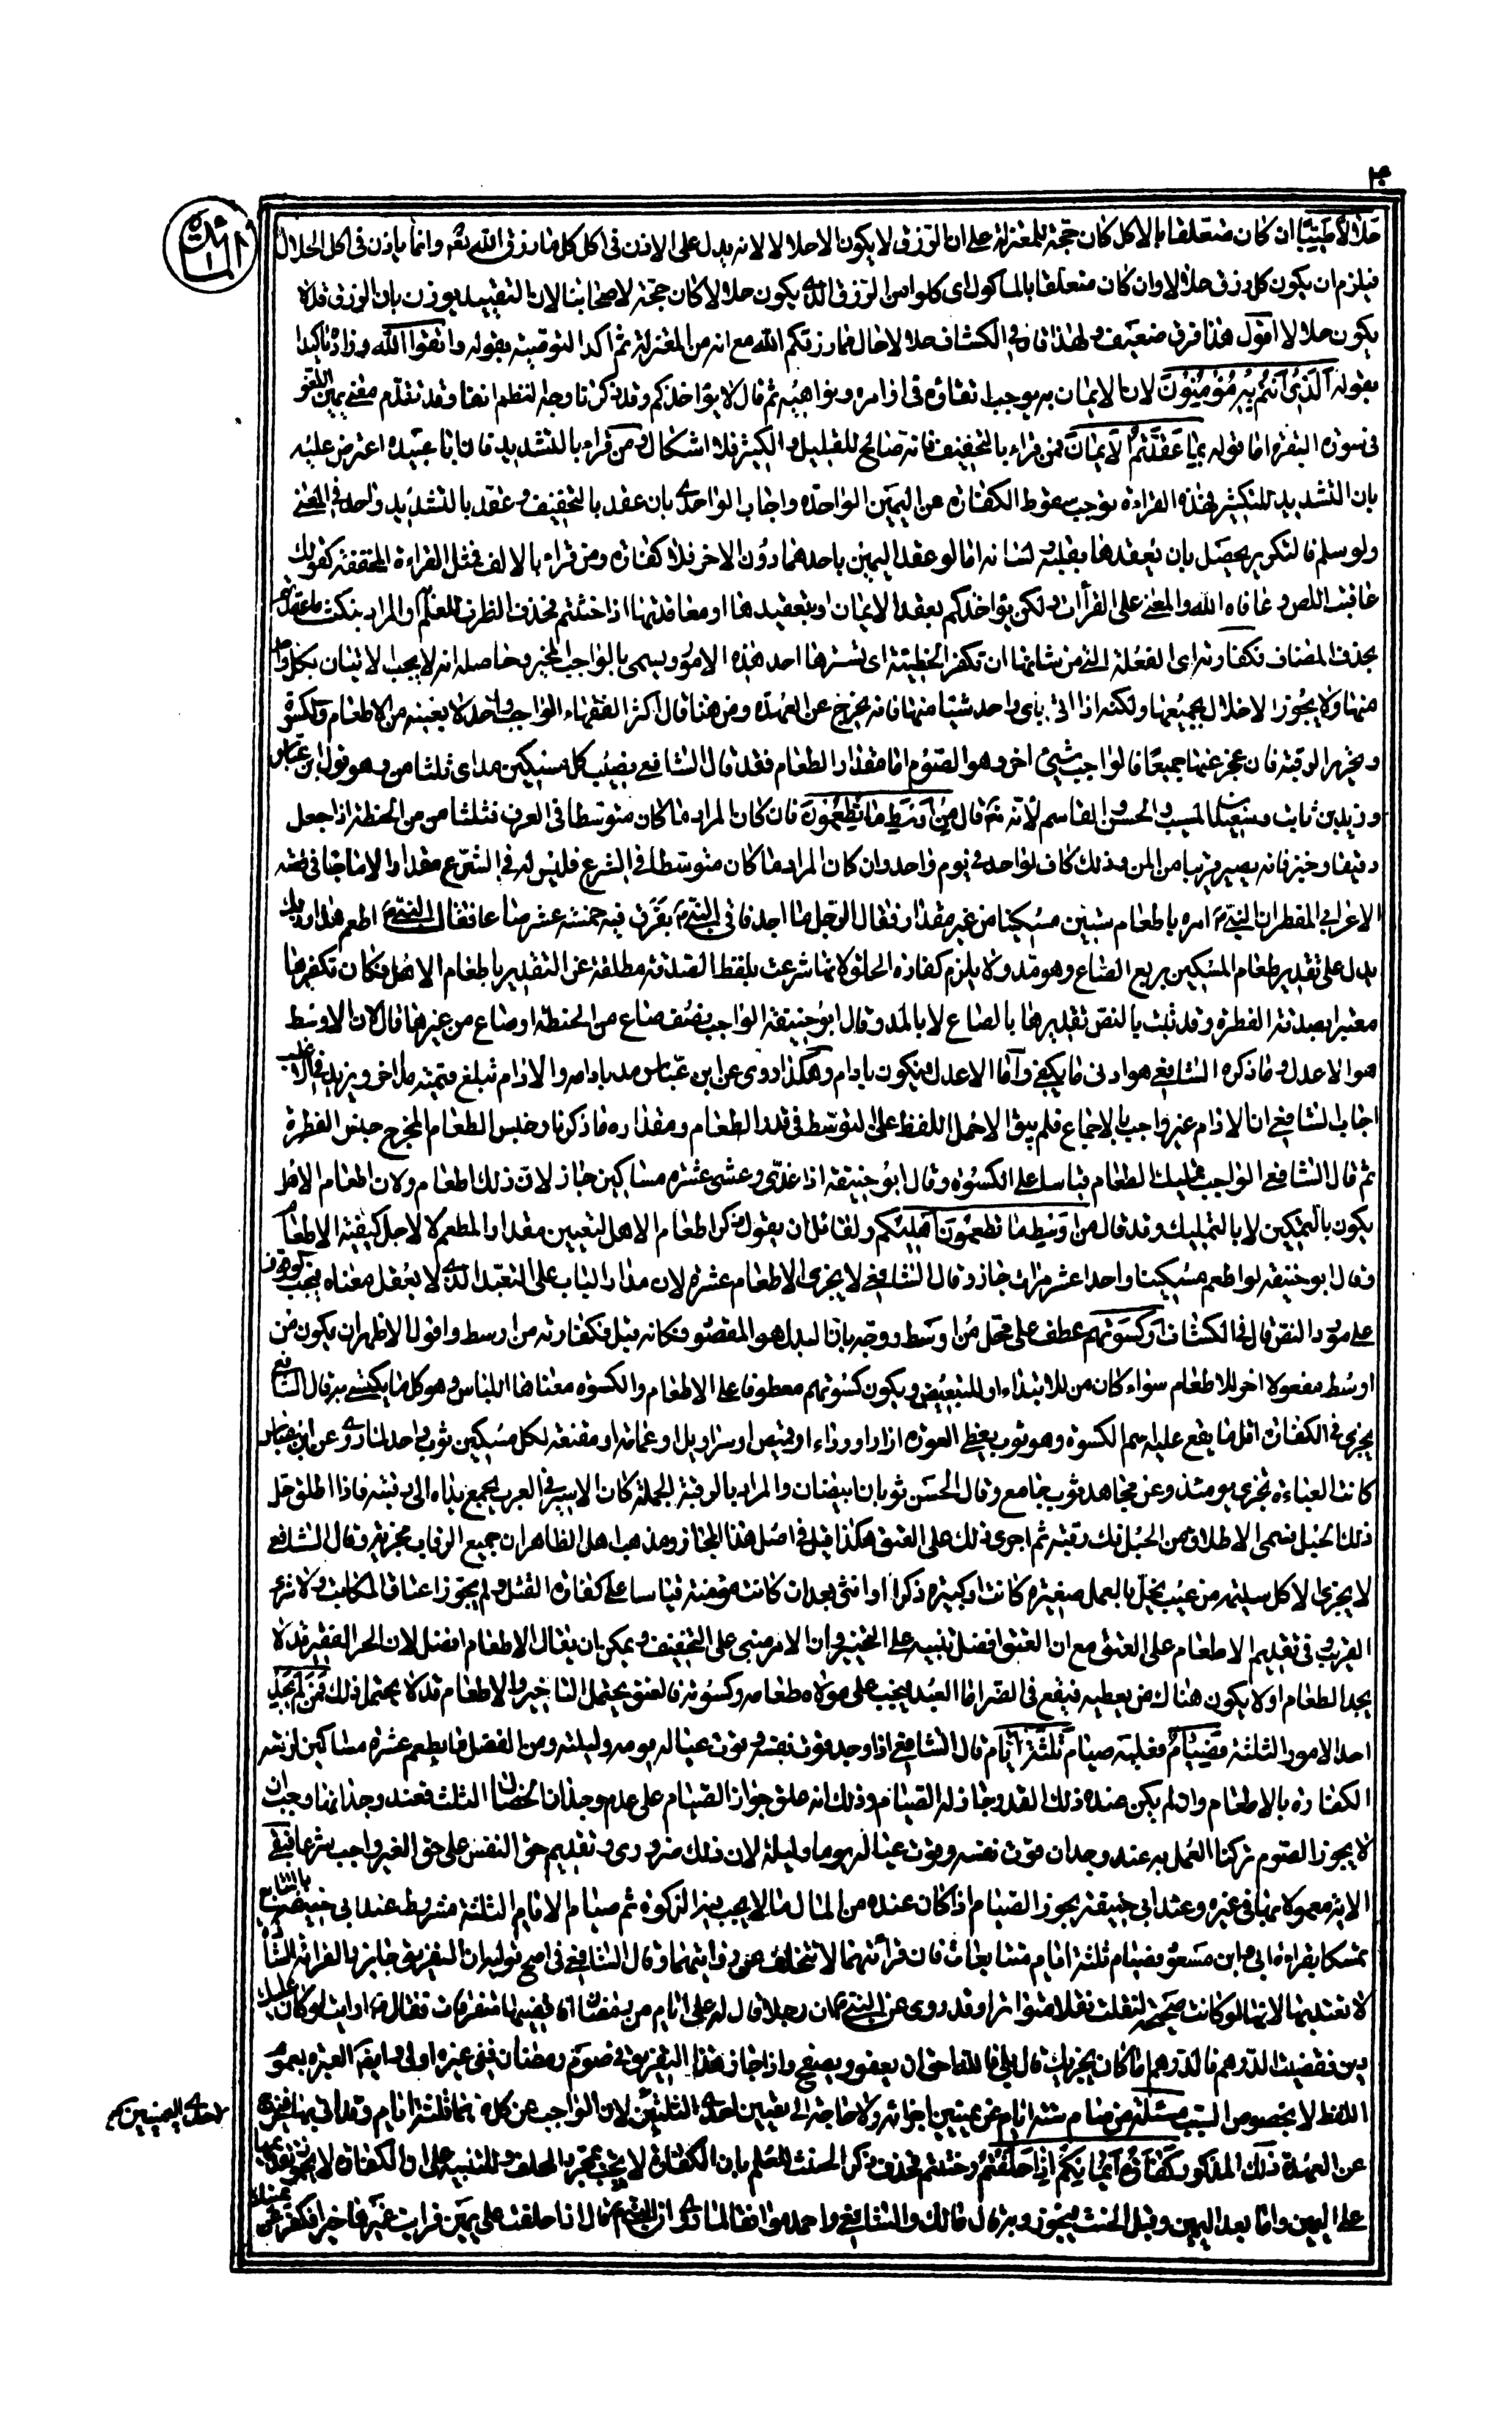 حَلٰلًا طَيِّبًا ان كان متعلقا بالاكل كان حجة للمعتزلة على ان الرزق لا يكون الا حلالا لانه يدل على الاذن فى اكل كل ما رزق الله تعالى وانما ياذن فى اكل الحلال
فيلزم ان يكون كل رزق حلالا وان كان متعلقا بالماكول اى كلوا من الرزق الذى يكون حلالا كان حجة لاصحابنا لان التقييد يوزن بان الرزق قد لا
يكون حلالا اقول هذا فرق ضعيف ولهذا قال فى الكشاف حلالا حال مما رزقكم الله مع انه من المعتزلة ثم اكد التوصية بقوله واتقوا الله وزاده تاكيدا
بقوله اَلَّذِى اَنْتُمْ بِهِ مُؤْمِنُونَ لان الايمان به يوجب اتقاؤه فى اوامره ونواهيه ثم قال لا يؤاخذكم وقد ذكرنا وجه النظم انفا وقد تقدم معنى يمين اللغو
فى سورة البقرة اما قوله بِمَا عَقَّدْتُمُ الْاَيْمَانَ فمن قراء بالتخفيف فانه صالح للقليل والكثير فلا اشكال ومن قراء بالتشديد فان ابا عبيدة اعترض عليه
بان التشديد للتكثير فهذه القراءة توجب سقوط الكفارة عن اليمين الواحدة واجاب الواحدى بان عقد بالتخفيف وعقد بالتشديد واحد فى المعنى
ولو سلم فالتكرير يحصل بان يعقدها بقلبه ولسانه اما لو عقد اليمين باحدهما دون الاخر فلا كفارة ومن قراء بالالف فمثل القراءة المخففة كقولك
عاقبت اللص وعافاه الله والمعنى على القراات ولكن يؤاخذكم بعقد الايمان او بتعقيدها او معاقدتها اذا حنثتم فحذف الظرف للعلم او المراد بنكث ما عقدتم
بحذف المضاف فكفارته اى الفعلة التى من شانها ان تكفر الخطيئة اى تسترها احد هذه الامور ويسمى بالواجب المخير وحاصله انه لا يجب الاتيان بكل واحد
منها ولا يجوز الاخلال بجميعها ولكنه اذا اتى باى واحد شيئا منها فانه يخرج عن العهدة ومن هنا قال اكثر الفقهاء الواجب واحد لا بعينه من الاطعام والكسوة
وتحرير الرقبة فان عجز عنها جميعا فالواجب شيئ اخر وهو الصوم اما مقدار الطعام فقد قال الشافعى نصيب كل مسكين مد اى ثلثا من وهو قول ابن عباس
وزيد بن ثابت وسعيد بن المسيب والحسن والقاسم لانه تعالى قال مِنْ اَوْسَطِ مَا تُطْعِمُونَ فان كان المراد ما كان متوسطا فى العرف فثلثا من من الحنطة اذا جعل
دقيقا وخبز فانه يصير قريبا من المن وذلك كاف لواحد فى يوم واحد وان كان المراد ما كان متوسطا فى الشرع فليس له فى الشرع مقدار الا ما جاء فى قصة
الاعرابى المفطر ان النبى امره باطعام ستين مسكينا من غير مقدار فقال الرجل ما اجد فاتى النبى بعرق فيه خمسة عشر صاعا فقال النبى اطعم هذا وذلك
يدل على تقدير طعام المسكين بربع الصاع وهو مد ولا يلزم كفارة الحلق لانها شرعت بلفظ الصدقة مطلقة عن التقدير باطعام الاهل فكان تكفيرها
معتبرا بصدقة الفطرة وقد ثبت بالنص تقديرها بالصاع لا بالمد وقال ابو حنيفة الواجب نصف صاع من الحنطة او صاع من غيرها قال لان الاوسط
هو الاعدل وما ذكره الشافعى هو ادنى ما يكفى واما الاعدل فيكون بادام وهكذا روى عن ابن عباس مد بادامه والادام تبلغ قيمته مدا اخر ويزيد فى الاغلب
اجاب الشافعى ان الادام غير واجب بالاجماع فلم يبق الا حمل اللفظ على التوسط فى قدر الطعام ومقداره ما ذكرنا وجنس الطعام المخرج جنس الفطرة
ثم قال الشافعى الواجب تمليك الطعام قياسا على الكسوة وقال ابو حنيفة اذا غدى وعشى عشرة مساكين جاز لان ذلك اطعام ولان اطعام الاهل
يكون بالتمكين لا بالتمليك وقد قال من اوسط ما تطعمون اهليكم ولقائل ان يقول ذكر اطعام الاهل لتعيين مقدار المطعم لا لاجل كيفية الاطعام
وقال ابو حنيفة لو اطعم مسكينا واحدا عشر مرات جاز وقال الشافعى لا يجزى الا اطعام عشرة لان مدار الباب على التعبد الذى لا يعقل معناه فيجب الوقوف
على مورد النص قال فى الكشاف اَوْ كِسْوَتُهُمْ عطف على محل مِنْ اوسط ووجه بان البدل هو المقصود فكانه قيل فكفارته من اوسط واقول الاظهر ان يكون من
اوسط مفعولا اخر للاطعام سواء كان من للابتداء او للتبعيض ويكون كسوتهم معطوفا على الاطعام والكسوة معناها اللباس وهو كل ما يكتسى به قال الشافعى
يجزى فى الكفارة اقل ما يقع عليه اسم الكسوة وهو ثوب يغطى العورة ازار او رداء او قميص او سراويل او عمامة او مقنعة لكل مسكين ثوب واحد لما روى عن ابن عباس
كانت العباءة تجزى يومئذ وعن مجاهد ثوب جامع وقال الحسن ثوبان ابيضان والمراد بالرقبة الجملة كان الاسير فى العرب يجمع يداه الى رقبته فاذا اطلق حل
ذلك الحبل فسمى الاطلاق من الحبل فك رقبة ثم اجرى ذلك على العتق هكذا قيل فى اصل هذا المجاز ومذهب اهل الظاهر ان جميع الرقاب مجزية وقال الشافعى
لا يجزى الا كل سليمة من عيب يخل بالعمل صغيرة كانت او كبيرة ذكرا او انثى بعد ان كانت مؤمنة قياسا على كفارة القتل ولم يجوز اعتاق المكاتب ولا شرى
القريب وفى تقديم الاطعام على العتق مع ان العتق افضل تنبيه على التخيير وان الامر مبنى على التخفيف ويمكن ان يقال الاطعام افضل لان الحر الفقير قد لا
يجد الطعام او لا يكون هناك من يعطيه فيقع فى الضر اما العبد يجب على مولاه طعامه وكسوته فالعتق يحتمل التاخير والاطعام قد لا يحتمل ذلك فَمَنْ لَمْ يَجِدْ
احد الامور الثلثة فَصِيَامُ فعليه صيام ثَلٰثَةِ اَيَّام قال الشافعى اذا وجد قوت نفسه وقوت عياله يومه وليلته ومن الفضل ما يطعم عشرة مساكين لزمته
الكفارة بالاطعام وان لم يكن عنده ذلك القدر جاز له الصيام وذلك انه علق جواز الصيام على عدم وجدان الخصال الثلث فعند وجدانها وجب ان
لا يجوز الصوم تركنا العمل به عند وجدان قوت نفسه وقوت عياله يوما وليلة لان ذلك ضرورى وتقديم حق النفس على حق الغير واجب شرعا فبقى
الاية معمولا بها فى غيره وعند ابى حنيفة يجوز الصيام اذا كان عنده من المال ما لا يجب فيه الزكوة ثم صيام الايام الثلثة مشروط عند ابى حنيفة بالتتابع
تمسكا بقراءة ابى وابن مسعود فصيام ثلثة ايام متتابعات فان قرائتهما لا تتخلف عن روايتهما وقال الشافعى فى اصح قوليه ان التفريق جايز والقراءة الشاذة
لا تعتد بها لانها لو كانت صحيحة لنقلت نقلا متواترا وقد روى عن النبى ان رجلا قال له على ايام من رمضان افاقضيها متفرقات فقال ارايت لو كان عليك
دين فقضيت الدرهم فالدرهم اما كان يجزيك قال بلى قال فالله احق ان يعفو ويصفح واذا جاز هذا التفريق فى صوم رمضان ففى غيره اولى وايضا العبرة بعموم
اللفظ لا بخصوص السبب مسئلة من صام ستة ايام عن يمينين اجزاته ولا حاجة الى تعيين احدى الثلثتين لان الواجب عن كل منهما ثلثة ايام وقد اتى بها فيخرج
عن العهدة ذلك المذكور كَفَّارَةُ اَيْمَانِكُمْ اِذَا حَلَفْتُمْ وحنثتم فحذف ذكر الحنث للعلم بان الكفارة لا تجب بمجرد الحلف وللتنبيه على ان الكفارة لا يجوز تقديمها
على اليمين واما بعد اليمين وقبل الحنث فيجوز وبه قال مالك والشافعى واحمد موافقا لما روى ان النبى قال اذا حلفت على يمين فرايت غيرها خيرا فكفر عن يمينك
لاحدى اليمينين